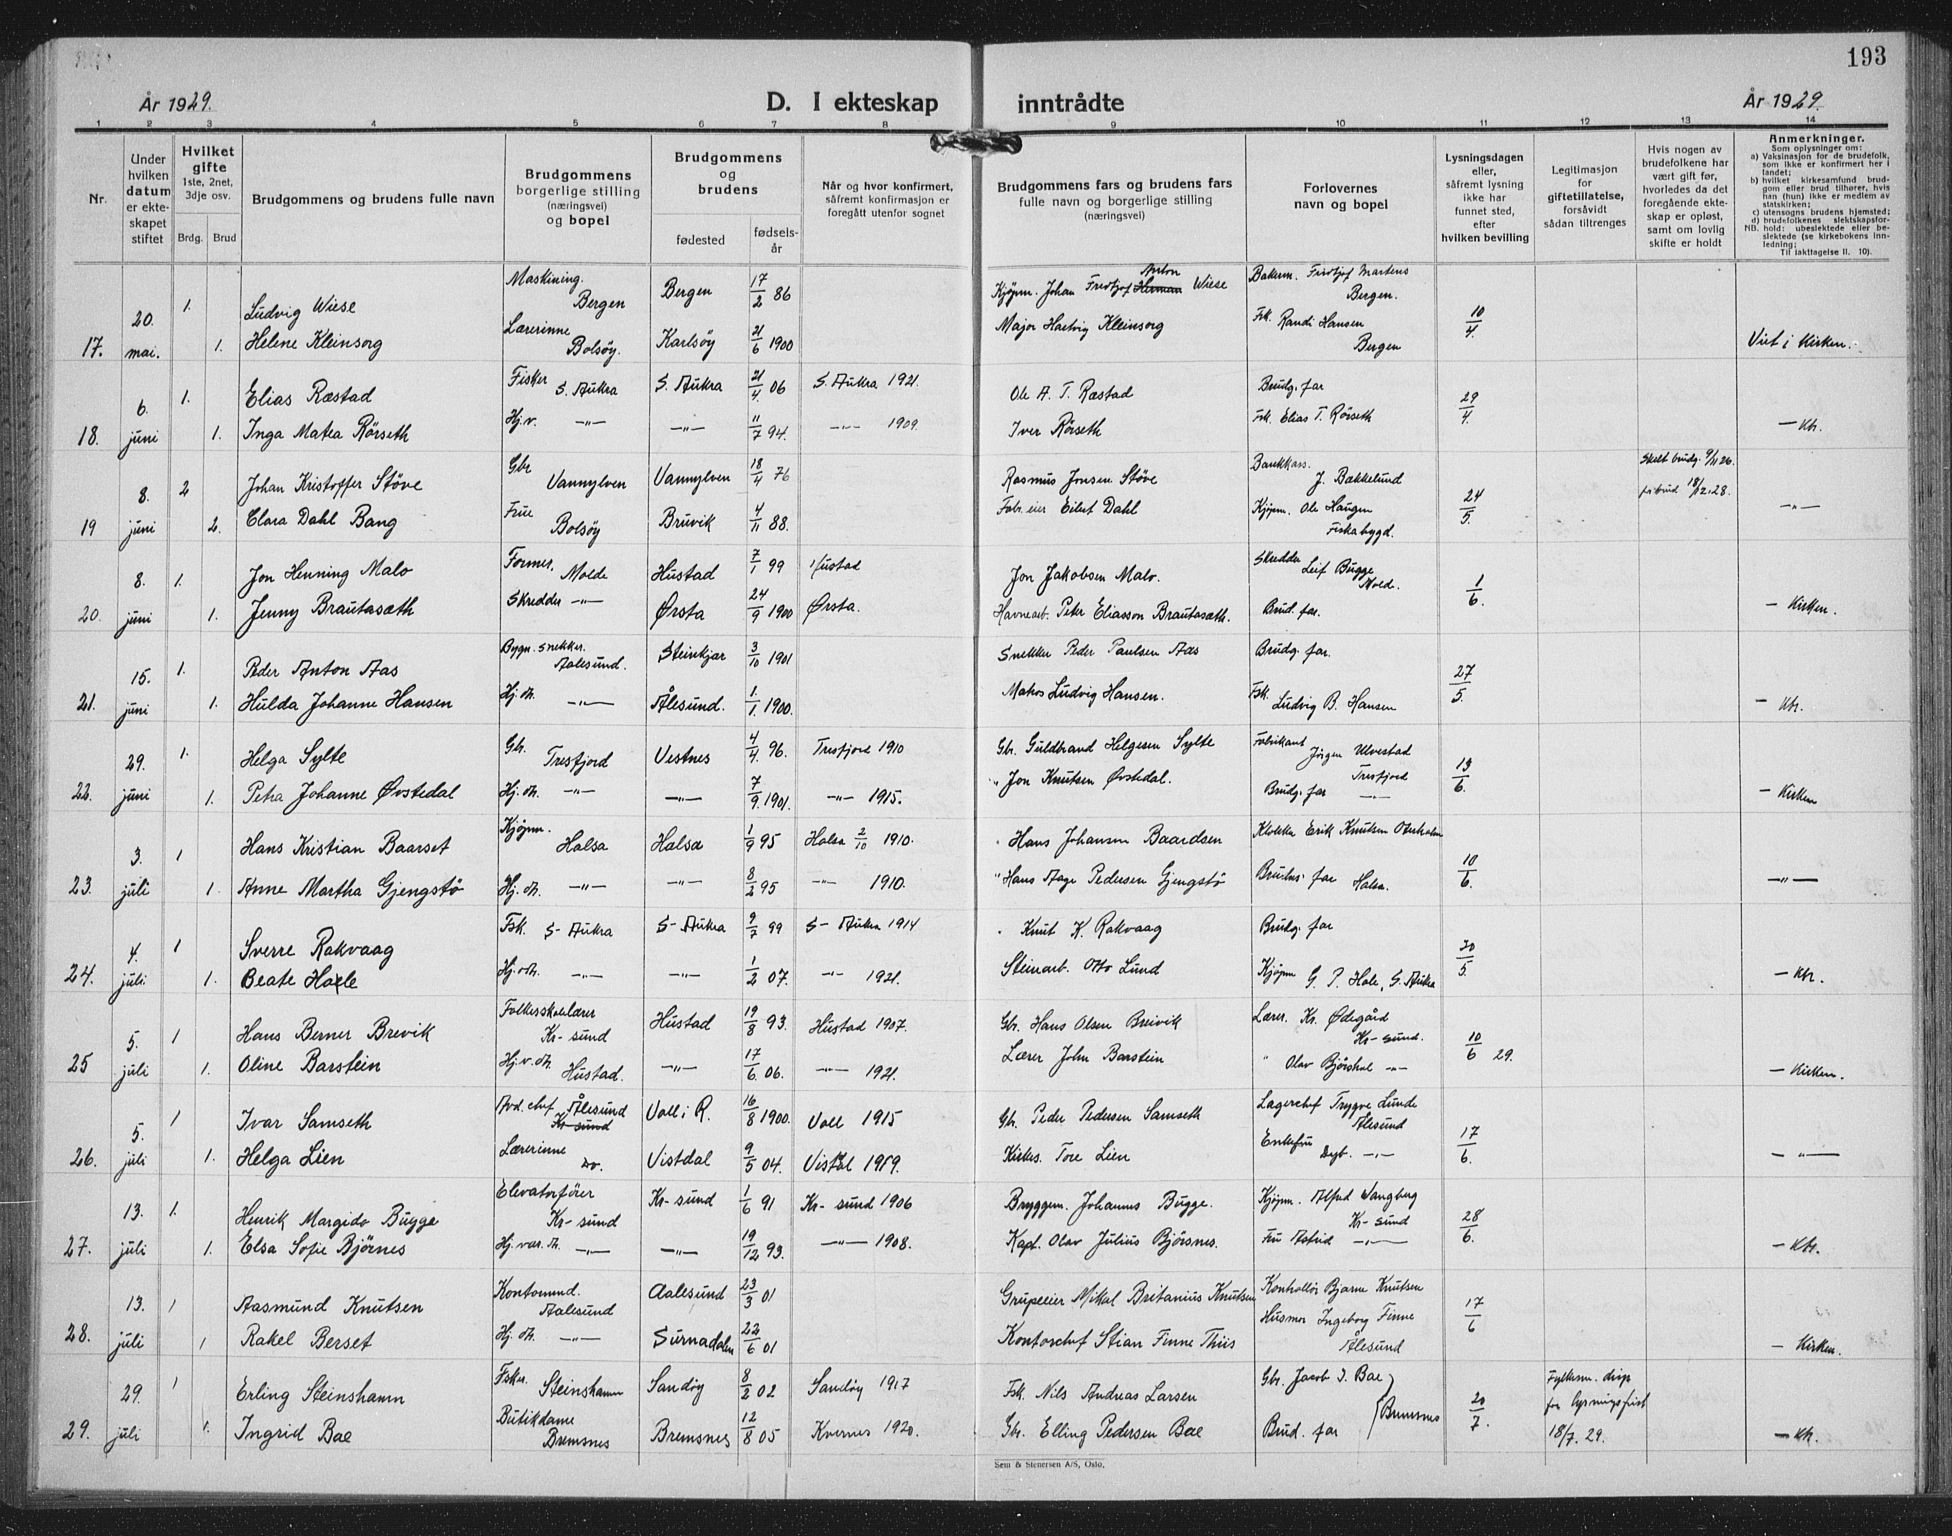 193
År 1929.
D. I ekteskap inntrådte
År 1929.
1 2 3 4 5 6 7 8 9 10 11 12 13 14
Nr.
Under hvilken datum er ekteskapet stiftet
Hvilket gifte 1ste, 2net, 3dje osv.
Brdg. Brud
Brudgommens og brudens fulle navn
Brudgommens borgerlige stilling (næringsvei) og bopel
Brudgommens og brudens
fødested
fødselsår
Når og hvor konfirmert, såfremt konfirmasjon er foregått utenfor sognet
Brudgommens fars og brudens fars fulle navn og borgerlige stilling (næringsvei)
Forlovernes navn og bopel
Lysningsdagen eller, såfremt lysning ikke har funnet sted, efter hvilken bevilling
Legitimasjon for giftetillatelse, forsåvidt sådan tiltrenges
Hvis nogen av brudefolkene har vært gift før, hvorledes da det foregående ekteskap er opløst, samt om lovlig skifte er holdt
Anmerkninger.
Som oplysninger om:
a) Vaksinasjon for de brudefolk, som ikke er konfirmert her i landet;
b) hvilket kirkesamfund brudgom eller brud tilhører, hvis han (hun) ikke er medlem av statskirken;
c) utensogns brudens hjemsted;
d) brudefolkenes slektskapsforhold: ubeslektede eller beslektede (se kirkebokens innledning;
NB.
Til iakttagelse II. 10).
17. 20. mai. 1. Ludvig Wiese Maskining. Bergen Bergen 17/2 86 Kjøpm. Johan Fredtjof Herman Anton Wiese Bakerm. Fredtjof Martens Bergen. 10/4
1. Helene Kleinsorg Lærerinne Bolsöy. Karlsöy 21/6 1900 Major Hartvig Kleinsorg Frk. Randi Hansen Bergen Viet i Kirken.
18. 6. juni 1. Elias Ræstad Fisker S. Aukra S. Aukra 21/4 06 S. Aukra 1921. Ole A. T. Ræstad Brudg. far 29/4.
1. Inga Matea Rörseth Hj.v. -"- -"- 11/7 94. -"- 1909. Iver Rörseth Fsk. Elias T. Rörseth - Ktr.
19 8. juni 2 Johan Kristoffer Störe Gbr Vannylven Vannylven 18/4 76 Rasmus Jonsen Störe Bankkass. J. Bakkelund 24/5. Skilt brudg. 9/11 26.
2. Clara Dahl Bang Frue Bolsöy Bruvik 4/11 88. Fabr.eier Eilert Dahl Kjøpm. Ole Haugen Fiskabygd. brud 18/12.28. -"-
20. 8. juni 1. Jon Henning Malo Former. Molde Hustad 7/1 99 Hustad Jon Jakobsen Malo. Skredder Leif Bugge Molde. 1/6.
1. Jenny Brautasæth Skredder -"- Ørsta 24/9 1900 Ørsta. Havnearb. Peter Eliasson Brautasæth. Brud. far. - Kirken.
21. 15. juni 1. Peder Anton Aas Bygn. snekker. Aalesund. Steinkjær 3/10 1901 Snekker Peder Paulsen Aas Brudg. far. 27/5.
1. Hulda Johanne Hansen Hj. dt. -"- Ålesund. 1/1. 1900. Matros Ludvig Hansen. Fsk. Ludvig B. Hansen - Ktr.
22. 29. juni 1. Helge Sylte Gbr. Tresfjord Vestnes 4/4. 96. Tresfjord 1910 Gbr. Guldbrand Helgesen Sylte Fabrikant Jörgen Ulvestad Tresfjord 13/6.
1. Petra Johanne Øvstedal Hj. dt. -"- -"- 7/9. 1901. -"- 1915. " Jon Knutsen Øvstedal. Brudg. far -"- - Kirken
23. 3. juli 1 Hans Kristian Baarset Kjöpm. Halsa Halsa 1/9 95 Halsa 2/10 1910. " Hans Johansen Baardsen Klokker Erik Knutsen Otterholm 10/6.
1. Anne Martha Gjengstö Hj. dt. -"- -"- 8/2 95 -"- 1910. " Hans Aage Pedersen Gjengstö Brudens far Halsa. -"-
24. 4. juli 1 Sverre Rakvaag Fsk. S- Aukra S- Aukra 9/7 99 S- Aukra 1914 " Knut K. Rakvaag Brudg. far 30/5
1. Beate Hale Hj. dt. -"- -"- 1/2 07. -"- 1921. Steinarb. Otto Lund Kjøpm G. P. Hale, S. Aukra - Ktr.
25 5. juli 1 Hans Berner Brevik Folkeskolelærer Kr- sund Hustad 19/8 93. Hustad 1907. Gbr. Hans Olsen Breivik Lærer. Kr. Ødegård Kr- sund. 10/6 29.
1. Oline Barstein Hj.v. dt. Hustad. -"- 17/6. 06. -"- 1921. Lærer John Barstein " Olav Bjórshol -"- - Kirken.
26. 5. juli 1 Ivar Samseth Avd. chef Ålesund Kr-sund Voll i R. 16/8 1900. Voll 1915 Gbr. Peder Pedersen Samseth Lagerchef Trygve Lunde Ålesund 17/6.
1. Helga Lien Lærerinne Do. Vistdal 9/5 04. Vistdal 1919. Kirkes. Tore Lien Enkefru Dyb. -"- -"-
27. 13. juli 1. Henrik Margido Bugge Elevatorfører Kr- sund Kr- sund 1/6 91 Kr- sund 1906 Bryggem. Johannes Bugge. Kjøpm. Alfred Wangberg Kr- sund 28/6.
1. Elsa Sofie Bjørnes Hj. var. dt. -"- -"- 19/12 93. -"- 1908. Kapt. Olav Julius Bjørsnes. Fru Astrid -"- - Ktr.
28. 13. juli 1 Aasmund Knutsen Kontormed. Aalesund Aalesund 23/3 01 Grupeeier Mikal Britanius Knutsen Kontrollör Bjarne Knutsen 17/6
1 Rakel Berset Hj. dt. -"- Surnadalen 22/6 01 Kontorchef Stian Finne Thiis Husmor Ingeborg Finne Ålesund - Kirken.
29. 29. juli 1 Erling Steinshamn Fisker. Steinshamn Sandøy 8/2 02 Sandøy 1917 Fsk. Nils Andreas Larsen Gbr. Jacob I. Bae Bremsnes 20/7. Fylkesm. disp for lysningsfrist 18/7. 29.
1. Ingrid Bae Butikdame Bremsnes Bremsnes 12/8 05 Kvernes 1920. Gbr. Elling Pedersen Bae Brud. far - Ktr.
Sem & Stenersen A/S, Oslo.